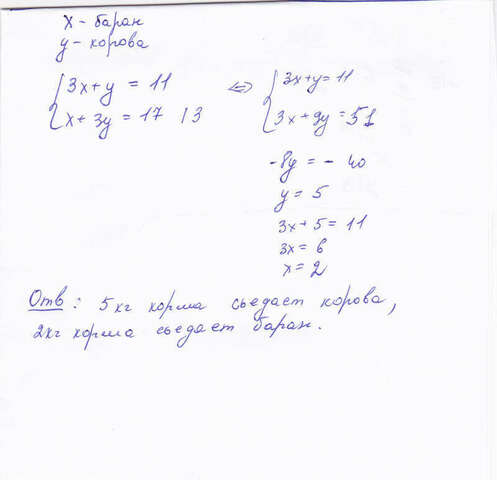 x - баран
y - корова
{3x+y = 11 <=> {3x+y=11
{x+3y = 17 /3 {3x+9y=51
-8y = - 40
y = 5
3x+5=11
3x=6
x=2
Отв: 5 кг корма сьедает корова,
2кг корма сьедает баран.